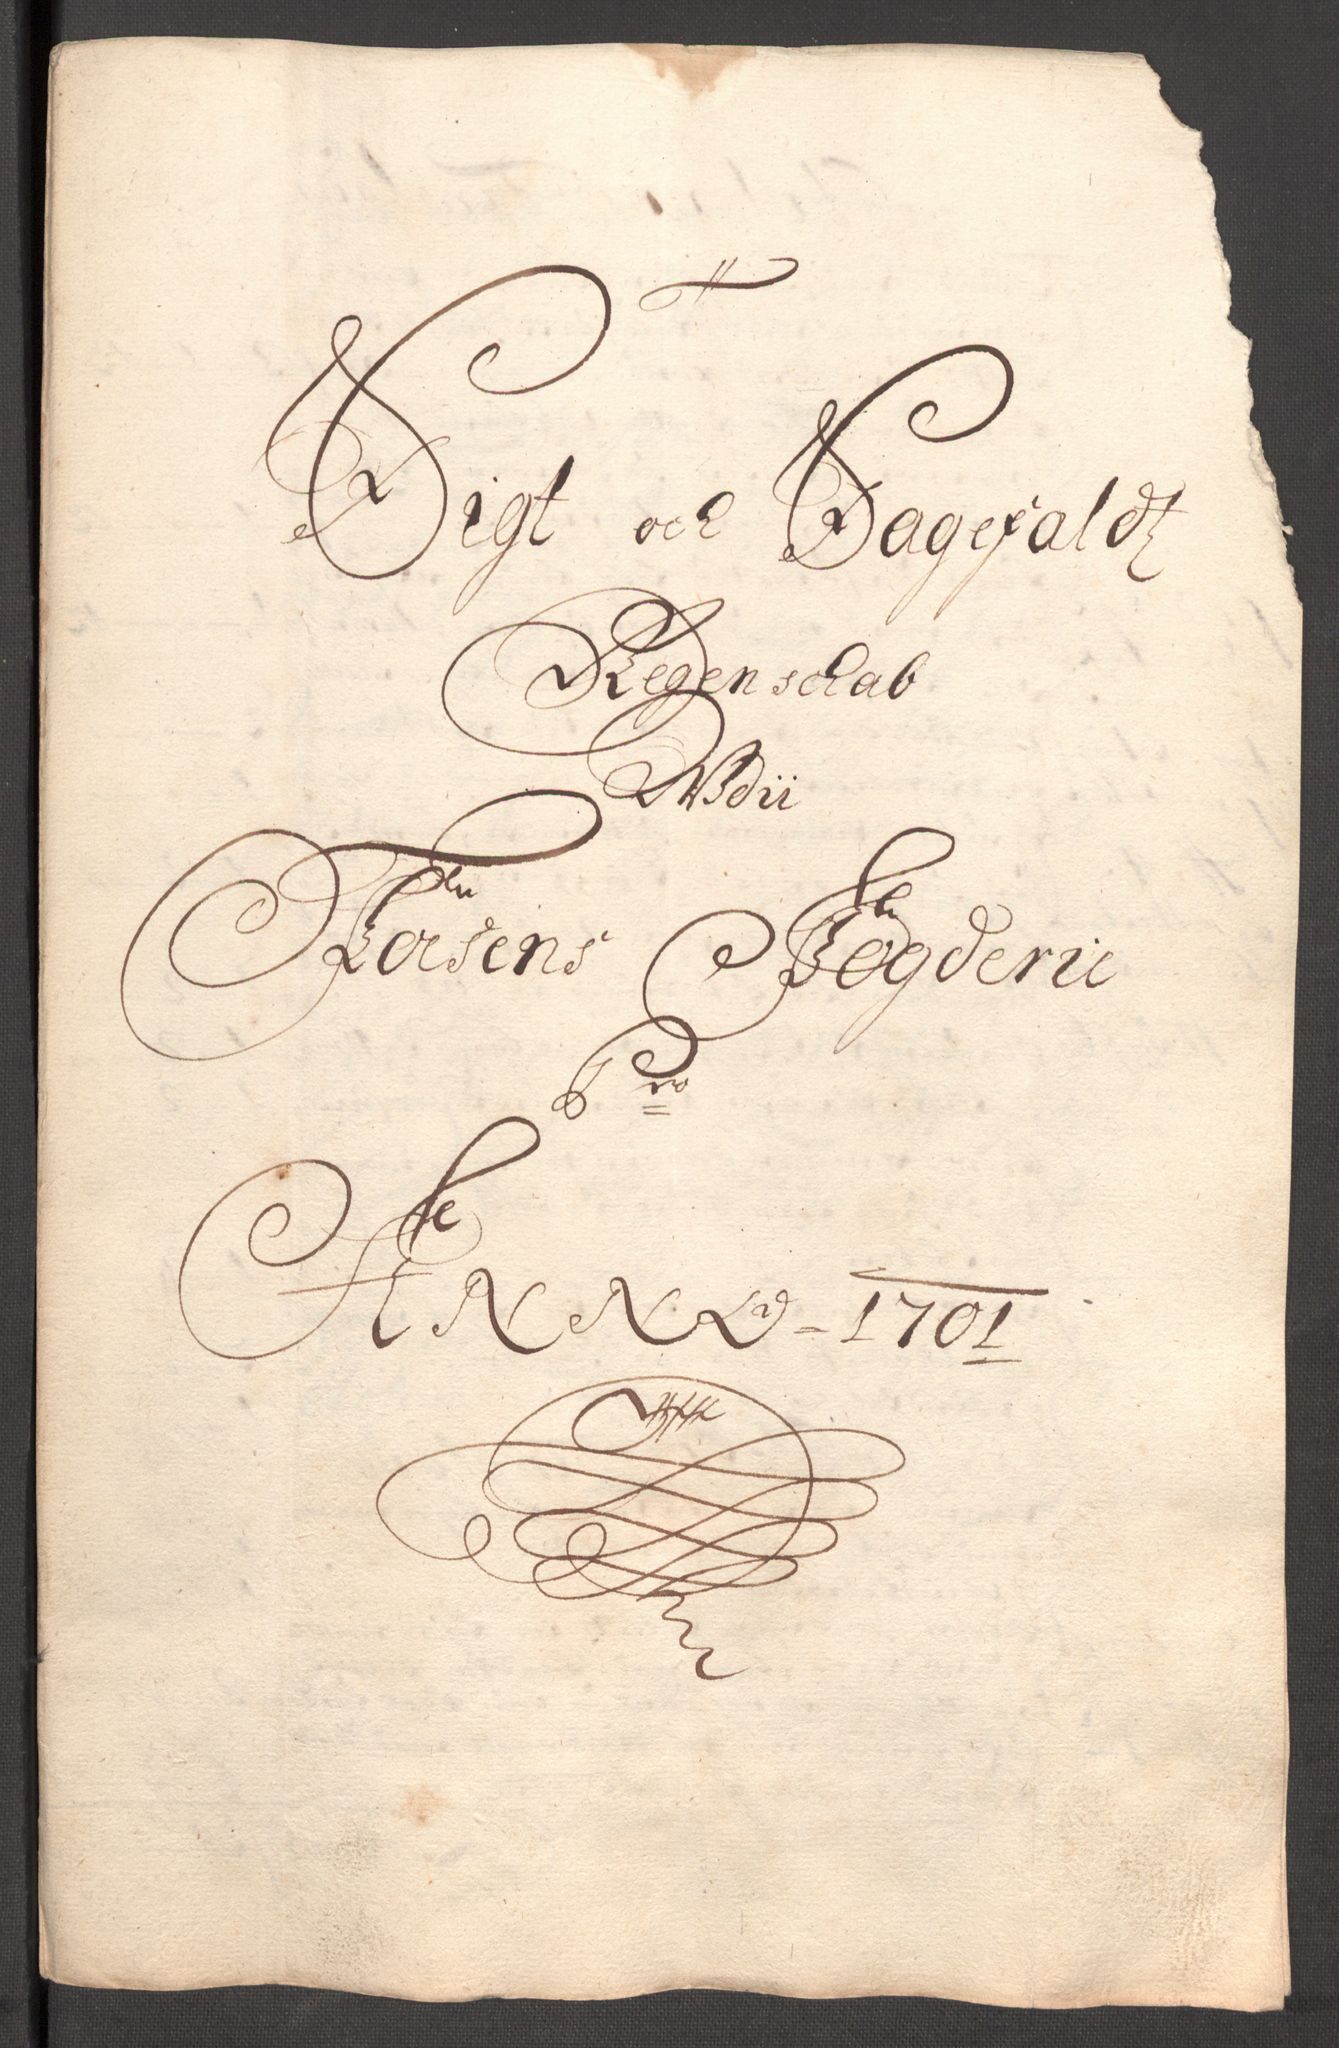 Sigt och Sagefaldz
Regenschab
Vdii
Fosens Fogderie
Pro
ANNO - 1701